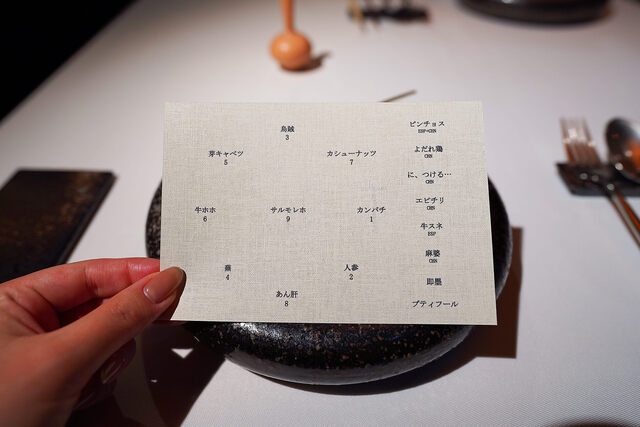 烏賊
3
芽キャベツ
5
カシューナッツ
7
牛ホホ
6
サルモレホ
9
カンパチ
1
蕪
4
人参
2
あん肝
8
ピンチョス
ESP+CHN
よだれ鶏
CHN
に、つける…
CHN
エビチリ
CHN
牛スネ
ESP
麻婆
CHN
即墨
プティフール